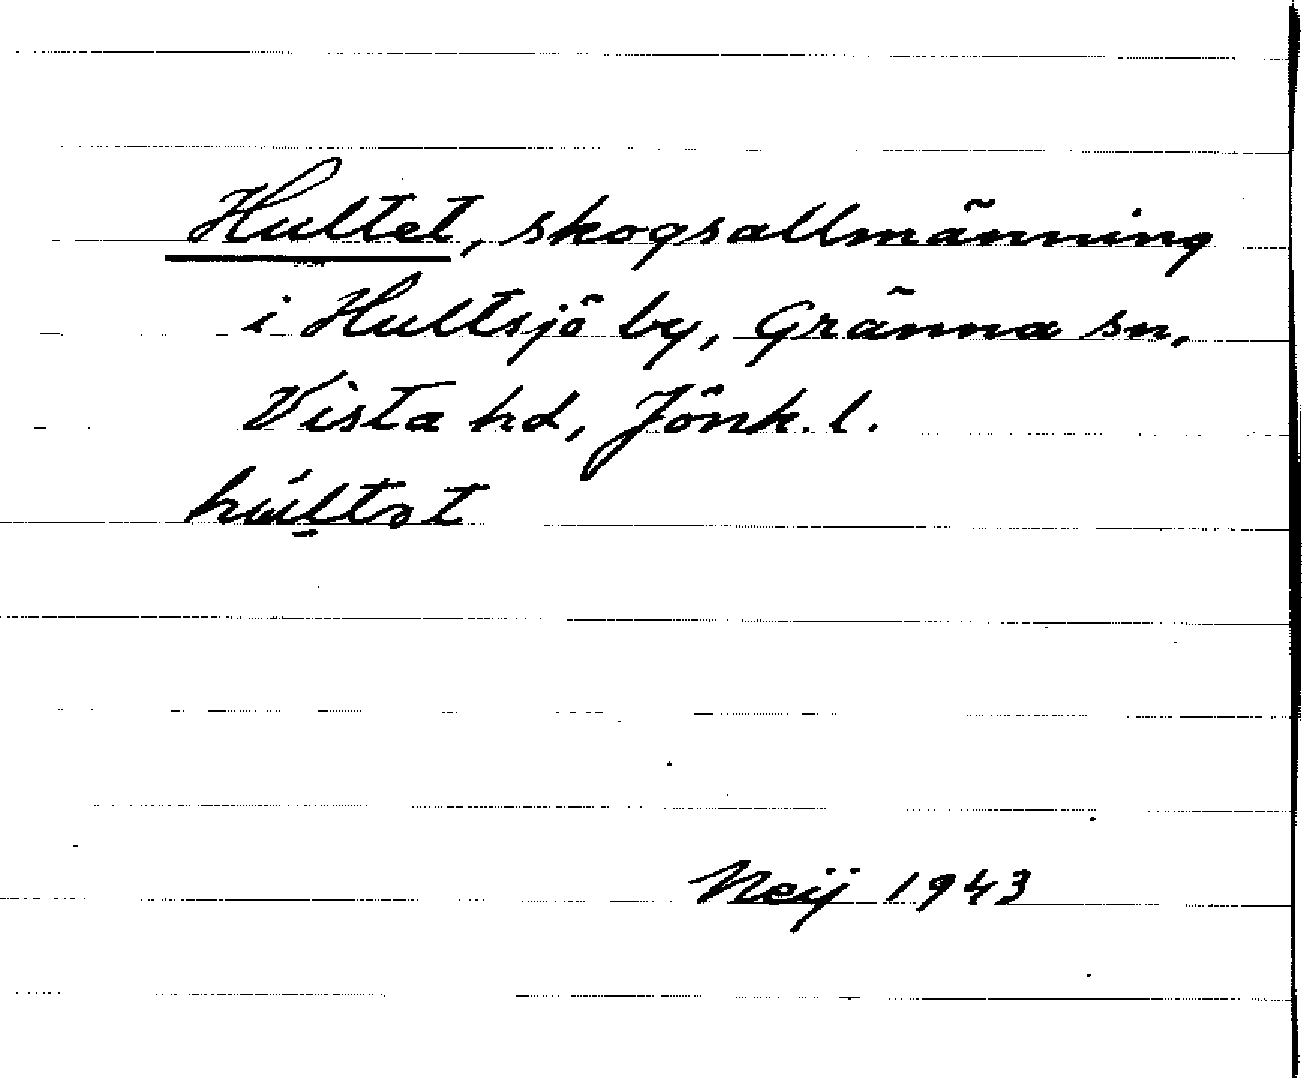 Hultet, skogsallmänning
i Hultsjö by, Gränna sn,
Vista hd, Jönk. l.
Neij 1943